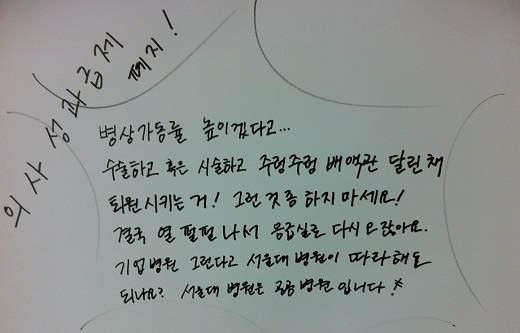 의사 성과급제
폐지!
병상가동률 높이겠다고...
수술하고 혹은 시술하고 주렁주렁 배액관 달린채
퇴원시키는거! 그런것좀 하지마세요!
결국 열 펄펄 나서 응급실로 다시 오잖아요.
기업병원 그런다고 서울대병원이 따라해도
되나요? 서울대병원은 공공병원 입니다!